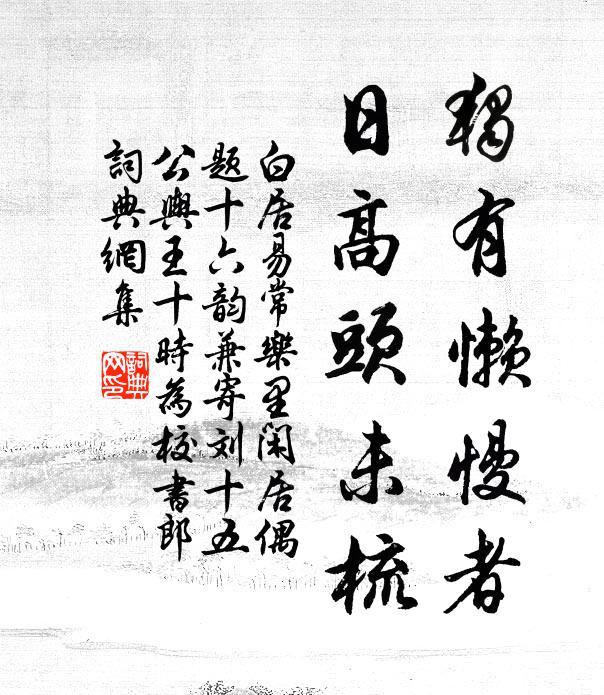 獨有懶慢者
日高頭未梳
白居易常樂里闲居偶
题十六韵兼寄刘十五
公輿王十時為校書郎
詞典網集
詞典网印